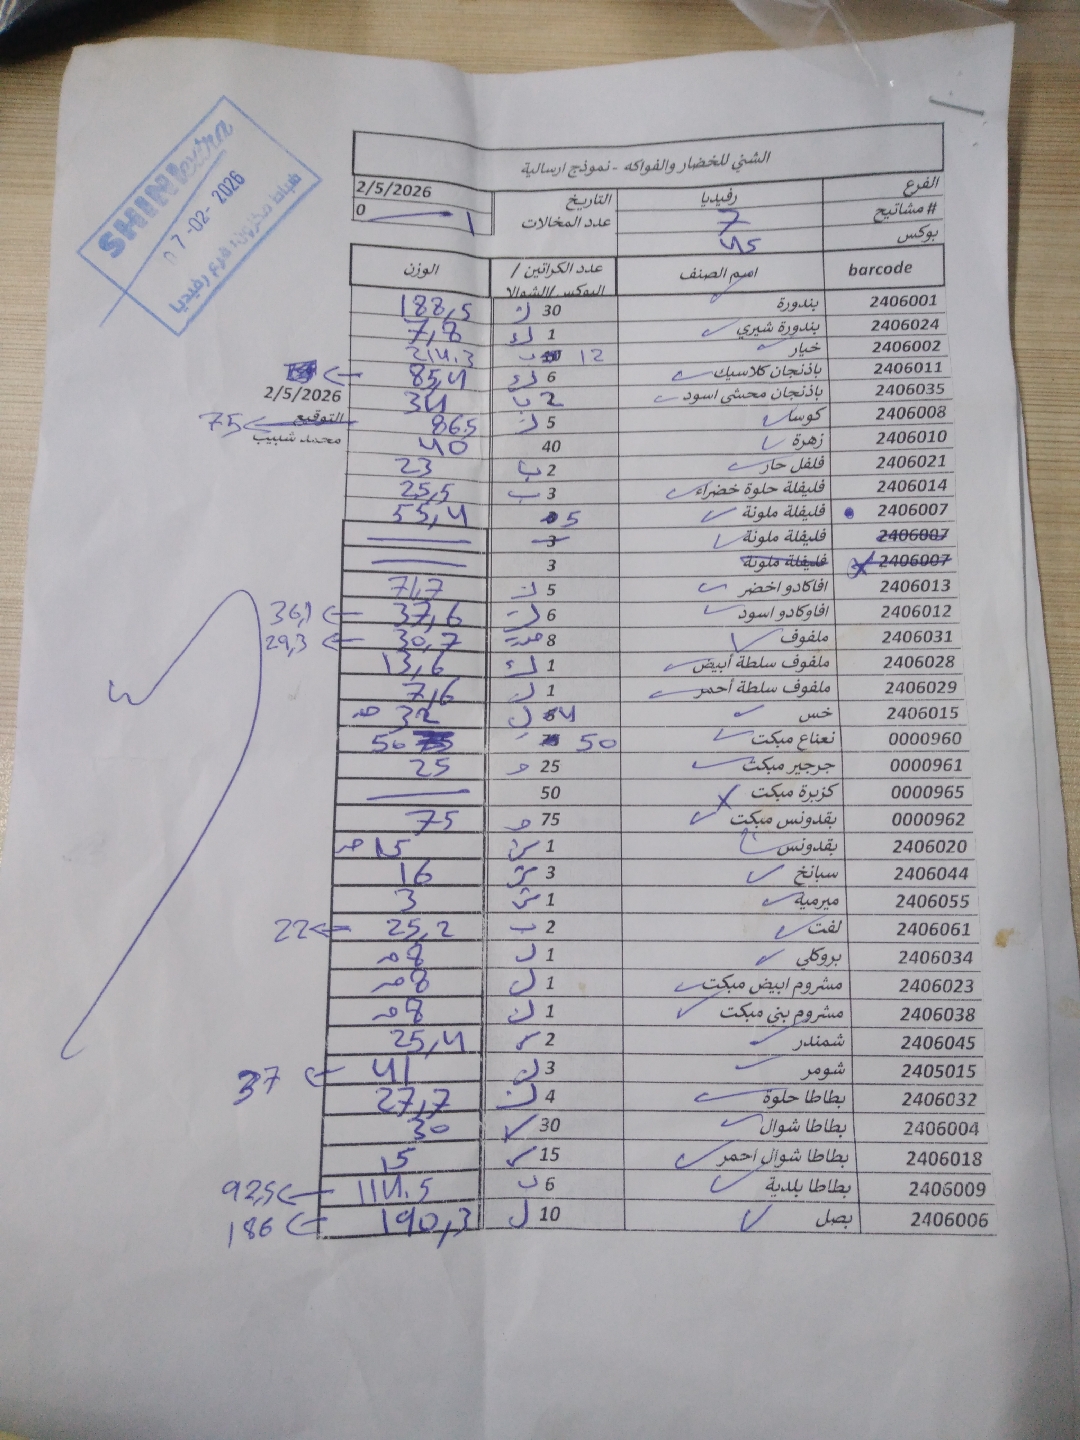 SHINI extra
07-02-2026
الشني للخضار والفواكه - نموذج ارسالية
الفرع رفيديا التاريخ 2/5/2026
# مشاتيح 7 عدد المخالات 0 1
بوكس 45
barcode اسم الصنف عدد الكراتين / البوكس/الشوالا الوزن
2406001 بندورة 30 188,5
2406024 بندورة شيري 1 7,8
2406002 خيار 12 214.3
2406011 باذنجان كلاسيك 6 85,4
2406035 باذنجان محشي اسود 2 34 2/5/2026
2406008 كوسا 5 86.5 التوقيع 75
2406010 زهرة 40 40 محمد شبيب
2406021 فلفل حار 2 ب 23
2406014 فليفلة حلوة خضراء 3 ب 25,5
2406007 فليفلة ملونة 5 55,4
2406007 فليفلة ملونة 3
2406007 فليفلة ملونة 3
2406013 افاكادو اخضر 5 71,7
2406012 افاوكادو اسود 6 37,6 36,1
2406031 ملفوف 8 30,7 29,3
2406028 ملفوف سلطة أبيض 1 13,6
2406029 ملفوف سلطة أحمر 1 7,6
2406015 خس 4 32
0000960 نعناع مبكت 50 50
0000961 جرجير مبكت 25 25
0000965 كزبرة مبكت 50
0000962 بقدونس مبكت 75 75
2406020 بقدونس 1 15
2406044 سبانخ 3 16
2406055 ميرمية 1 3
2406061 لفت 2 ب 25,2 22
2406034 بروكلي 1 8
2406023 مشروم ابيض مبكت 1 8
2406038 مشروم بني مبكت 1 8
2406045 شمندر 2 25,4
2405015 شومر 3 41 37
2406032 بطاطا حلوة 4 27,7
2406004 بطاطا شوال 30 30
2406018 بطاطا شوال احمر 15 15
2406009 بطاطا بلدية 6 ب 114.5 92,5
2406006 بصل 10 190,3 186